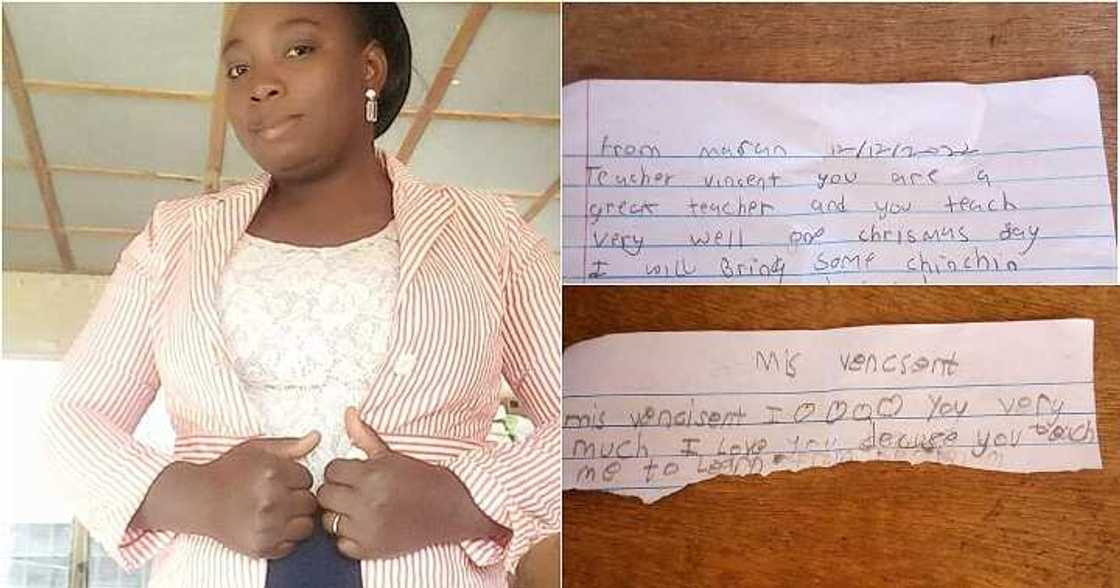 From maran 12/12/2022
Teacher vincent you are a
great teacher and you teach
very well one chrismus day
I will Bring some chinchin
Mis vencsent
mis vencisent I you very
much I Love you decuse you teach
me to Learn